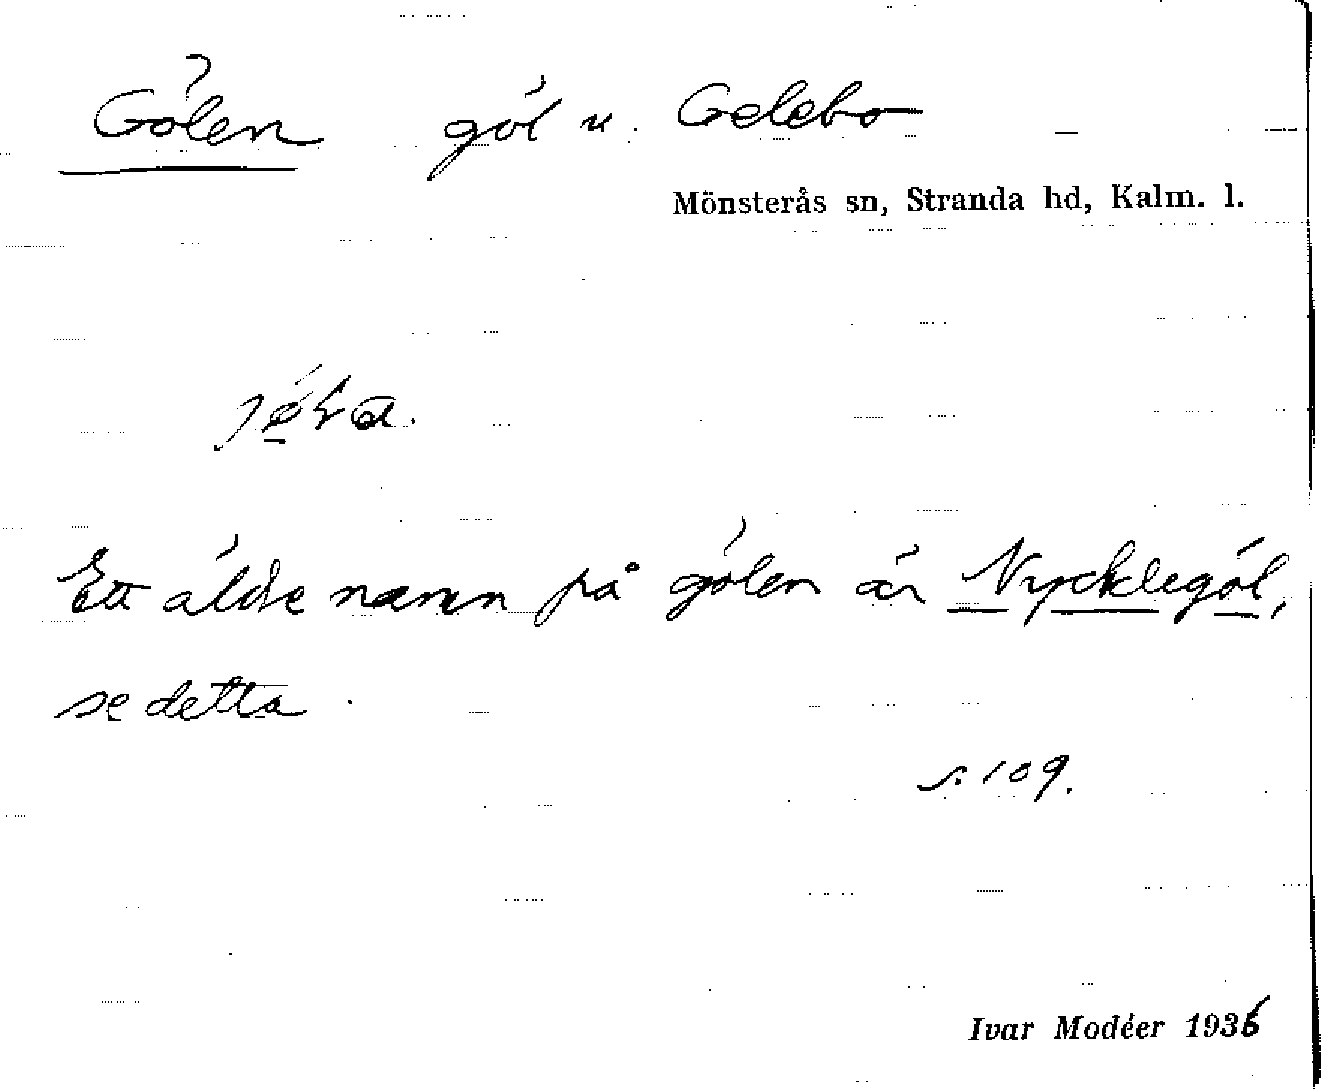 Gölen göl u. Gelebo
Mönsterås sn, Stranda hd, Kalm. l.
Ett äldre namn på gölen är Nycklegöl,
se detta.
s. 109.
Ivar Modéer 1936